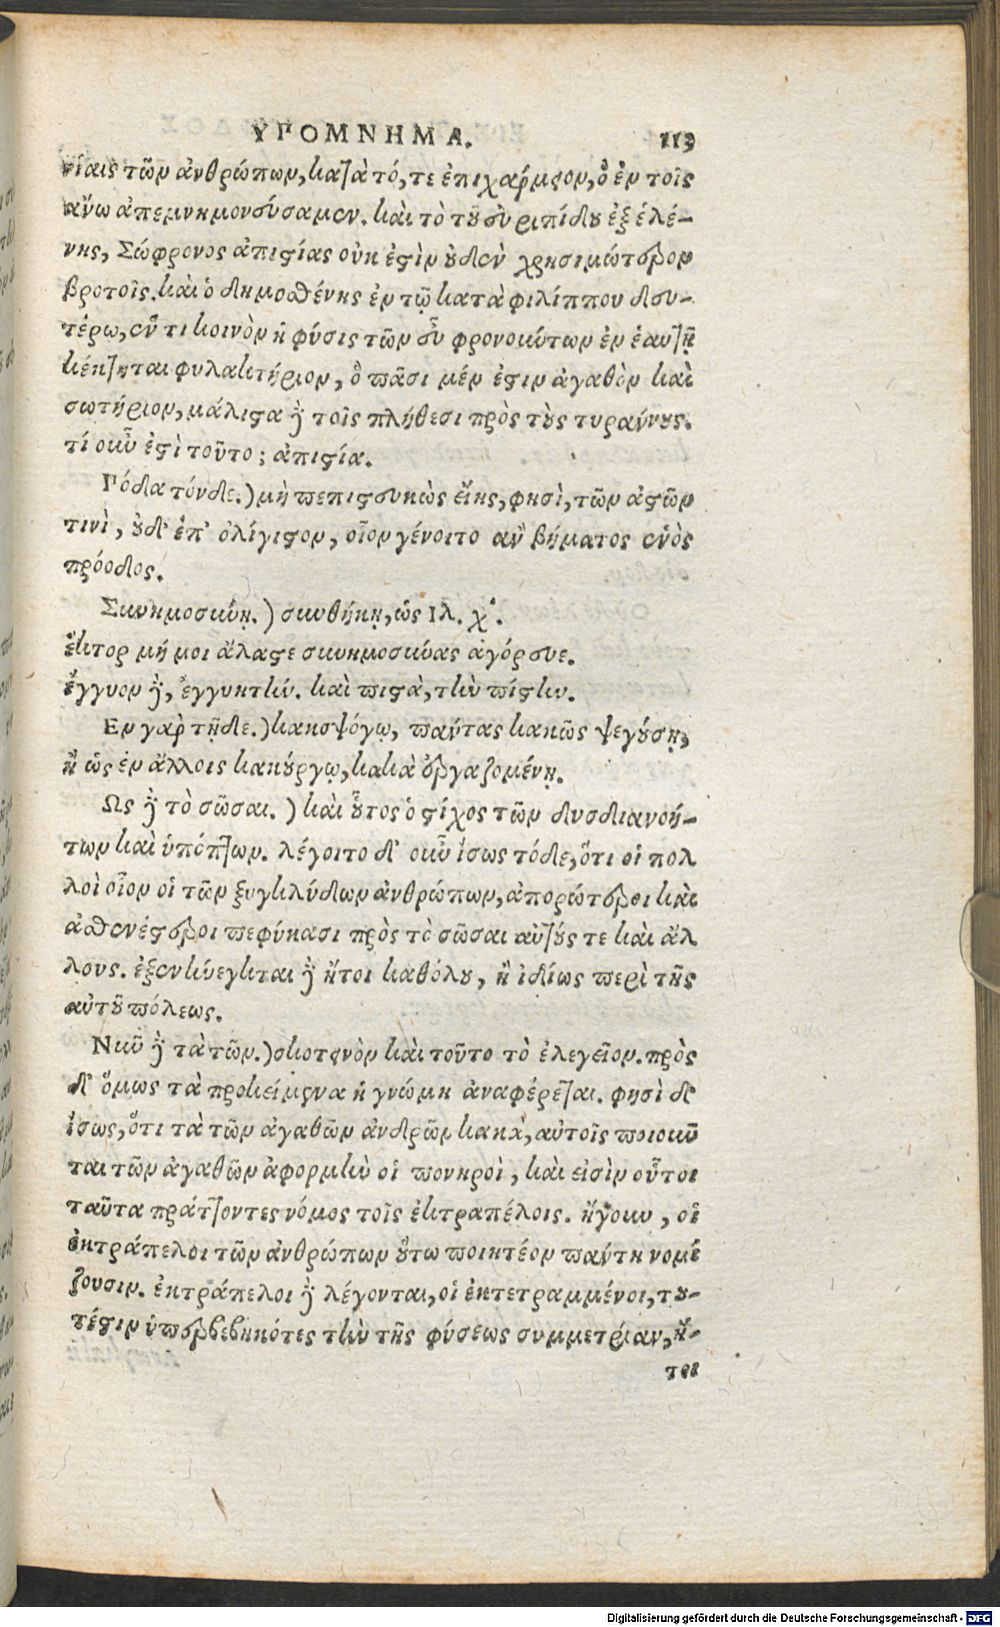 ΥΠΟΜΝΗΜΑ. 113
νίαις τῶν ἀνθρώπων, κατὰ τό, τε ἐπιχάρμειον, ὃ ἐν τοῖς
ἄνω ἀπεμνημονεύσαμεν. καὶ τὸ τοῦ εὐριπίδου ἐξ ἑλέ-
νης, Σώφρονος ἀπιστίας οὐκ ἐστὶν οὐδὲν χρησιμώτερον
βροτοῖς. καὶ ὁ δημοσθένης ἐν τῷ κατὰ φιλίππου δευ-
τέρῳ, ἕν τι κοινὸν ἡ φύσις τῶν εὖ φρονούντων ἐν ἑαυτῇ
κέκτηται φυλακτήριον, ὃ πᾶσι μέν ἐστιν ἀγαθὸν καὶ
σωτήριον, μάλιστα δὲ τοῖς πλήθεσι πρὸς τοὺς τυράννους.
τί οὖν ἐστὶ τοῦτο; ἀπιστία.
Πόδα τόνδε.) μὴ πεπιστευκὼς εἴης, φησὶ, τῶν ἀστῶν
τινὶ, οὐδ' ἐπ' ὀλίγιστον, οἷον γένοιτο ἂν βήματος ἑνὸς
πρόοδος.
Συνημοσύνῃ.) συνθήκῃ, ὡς Ιλ. χ΄.
ἕκτορ μή μοι ἄλαστε συνημοσύνας ἀγόρευε.
ἔγγυον δὲ, ἐγγυητὴν. καὶ πιστὰ, τὴν πίστιν.
Εν γὰρ τῇδε.) κακοψόγῳ, πάντας κακῶς ψεγούσῃ,
ἢ ὡς ἐν ἄλλοις κακούργῳ, κακὰ ἐργαζομένῃ.
Ως δὲ τὸ σῶσαι.) καὶ οὗτος ὁ στίχος τῶν δυσδιανοή-
των καὶ ὑπόπτων. λέγοιτο δ' οὖν ἴσως τόδε, ὅτι οἱ πολ
λοὶ οἷον οἱ τῶν ξυγκλύδων ἀνθρώπων, ἀπορώτεροι καὶ
ἀσθενέστεροι πεφύκασι πρὸς τὸ σῶσαι αὑτούς τε καὶ ἄλ
λους. ἐξενήνεγκται δὲ ἤτοι καθόλου, ἢ ἰδίως περὶ τῆς
αὐτοῦ πόλεως.
Νῦν δὲ τὰ τῶν.) σκοτεινὸν καὶ τοῦτο τὸ ἐλεγεῖον. πρὸς
δ' ὅμως τὰ προκείμενα ἡ γνώμη ἀναφέρεται. φησὶ δ'
ἴσως, ὅτι τὰ τῶν ἀγαθῶν ἀνδρῶν κακὰ, αὐτοῖς ποιοῦν
ται τῶν ἀγαθῶν ἀφορμὴν οἱ πονηροὶ, καὶ εἰσὶν οὗτοι
ταῦτα πράττοντες νόμος τοῖς ἐκτραπέλοις. ἤγουν, οἱ
ἐκτράπελοι τῶν ἀνθρώπων οὕτω ποιητέον πάντη νομί
ζουσιν. ἐκτράπελοι δὲ λέγονται, οἱ ἐκτετραμμένοι, του-
τέστιν ὑπερβεβηκότες τὴν τῆς φύσεως συμμετρίαν, ἤ-
τοι